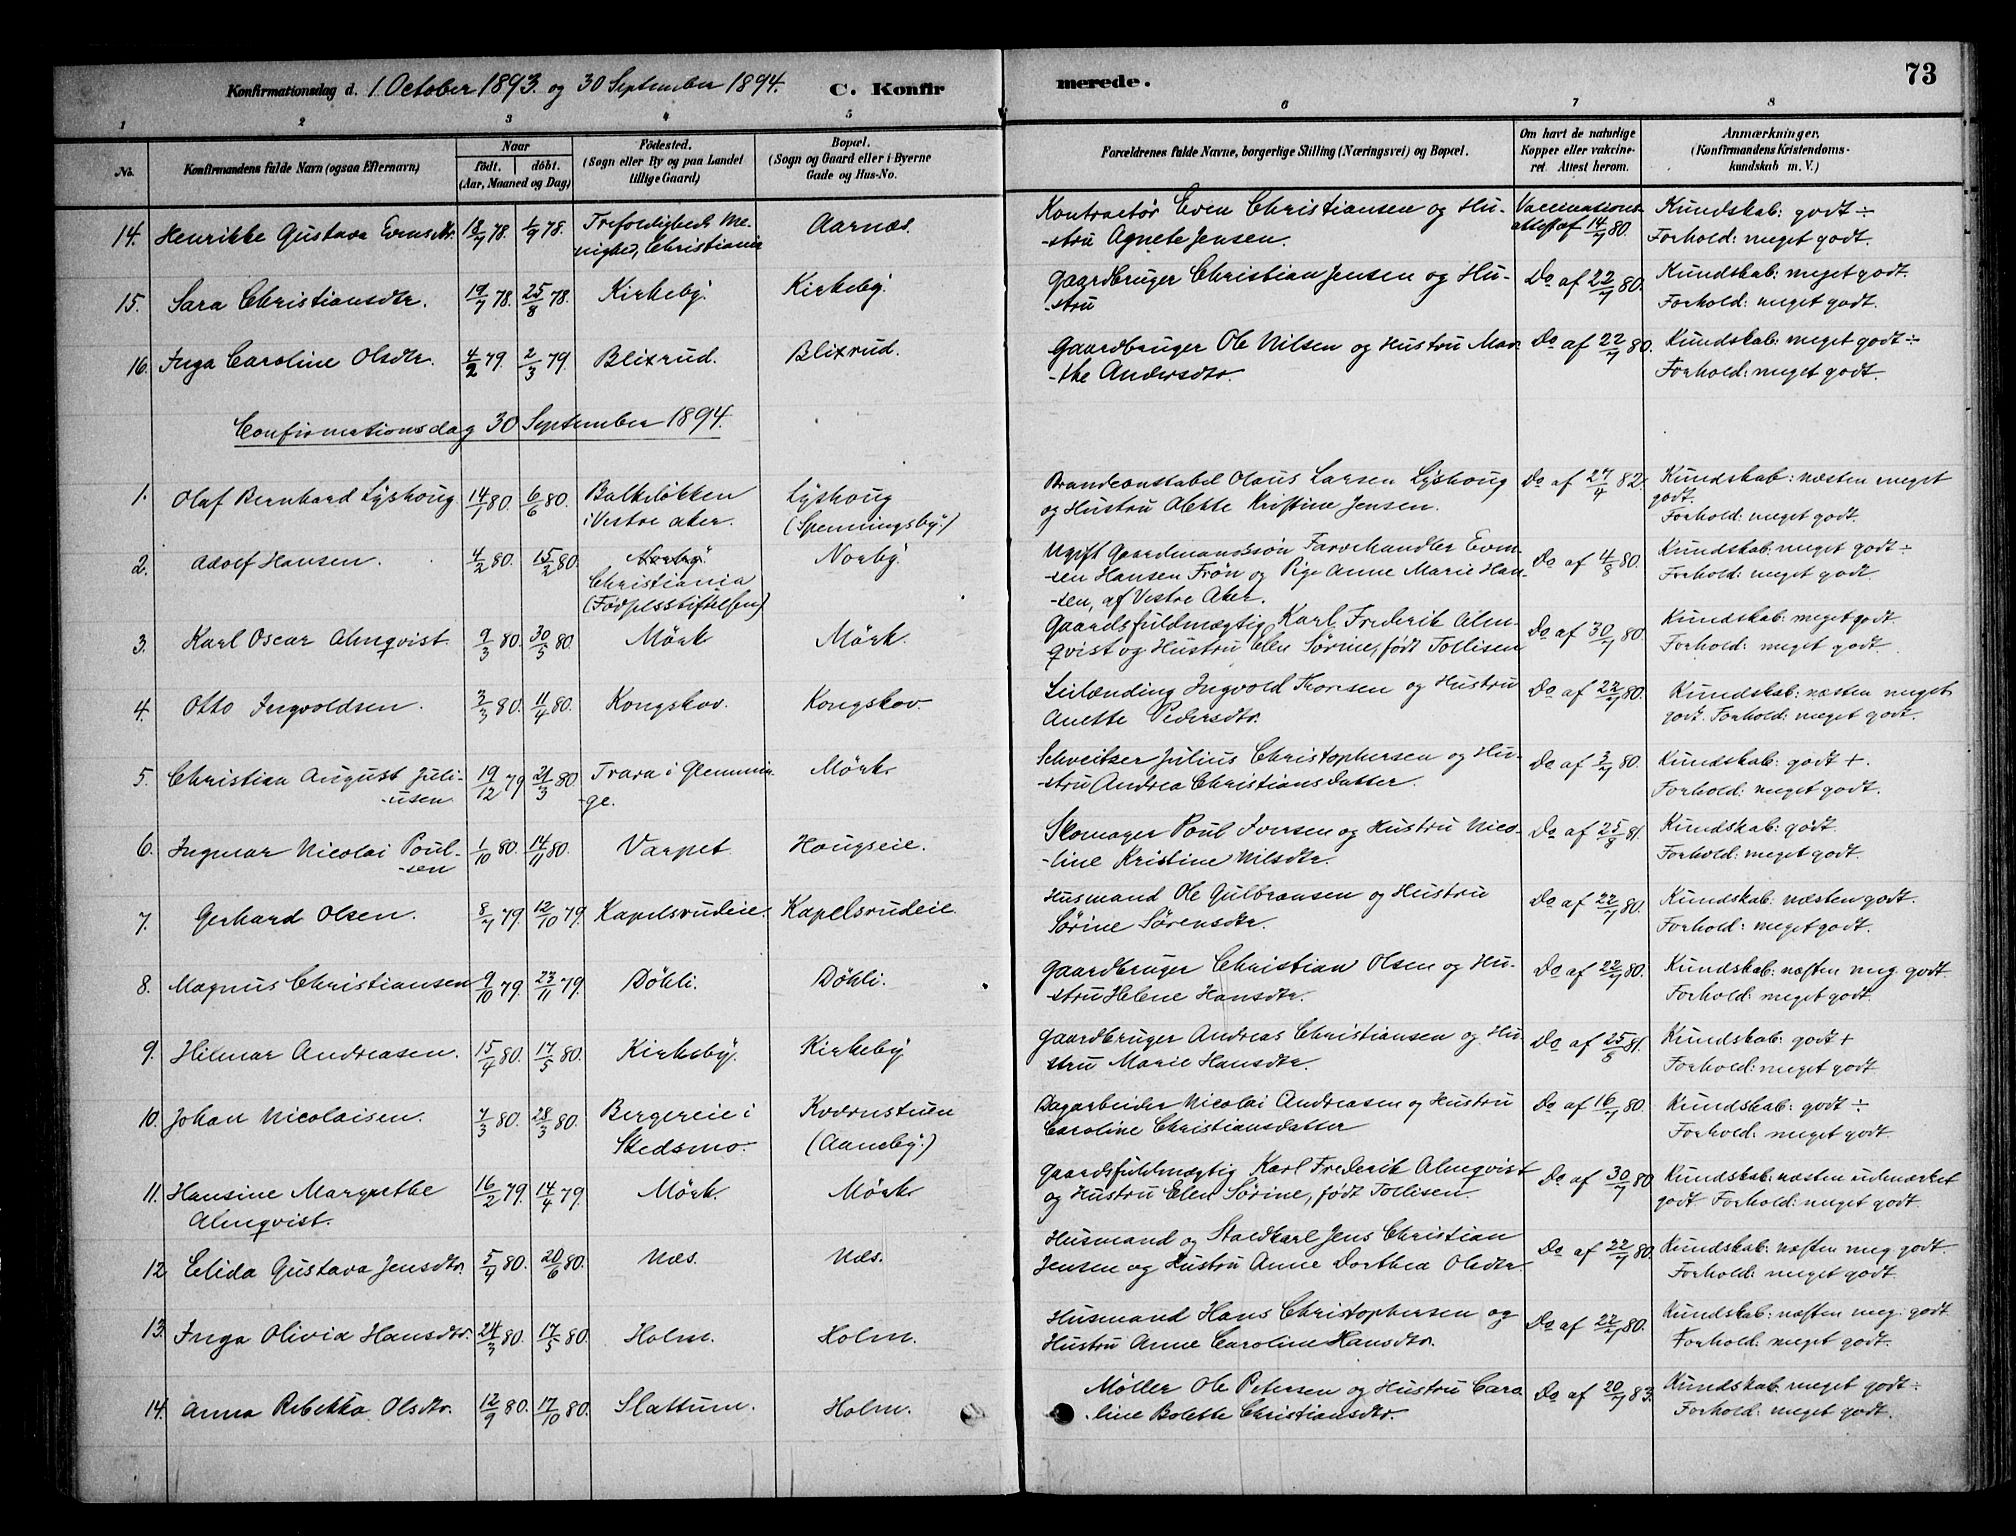 Konfirmationsdag d. 1 October 1893. og 30 September 1894. C. Konfir merede. 73
1 2 3 4 5 6 7 8
No. Konfirmandens fulde Navn (ogsaa Efternavn) Naar født. døbt. (Aar, Maaned og Dag) Fødested. (Sogn eller By og paa Landet tillige Gaard) Bopæl. (Sogn og Gaard eller i Byerne Gade og Hus-No. Forældrenes fulde Navne, borgerlige Stilling (Næringsvei) og Bopæl. Om havt de naturlige Kopper eller vakcineret. Attest herom. Anmærkninger. (Konfirmandens Kristendomskundskab m. V.)
14. Henrikke Gustava Evensdtr. 18/7 78. 1/9 78. Trefoldigheds Me- Aarnæs. Kontractør Even Christiansen og Hu- Vaccinations- Kundskab: godt ÷
nighed, Christiania -stru Agnete Jensen. attest af 14/7 80. Forhold: meget godt.
15. Sara Christiansdtr. 19/7 78. 25/8 78. Kirkeby. Kirkeby. Gaardbruger Christian Jensen og Hu- Do af 22/7 80. Kundskab: meget godt.
-stru Forhold: meget godt.
16. Inga Caroline Olsdtr. 4/2 79. 2/3 79. Blixrud. Blixrud. Gaardbruger Ole Nilsen og Hustru Mar- Do af 22/7 80. Kundskab: meget godt ÷
-the Andersdtr. Forhold: meget godt.
Confirmationsdag 30 September 1894.
1. Olaf Bernhard Lyshoug 14/1 80. 6/6 80. Balkeløkken Lyshoug Brandconstabel Olaus Larsen Lyshoug Do af 27/4 82. Kundskab: næsten meget
i Vestre Aker. (Spenningsby.) og Hustru Alette Kristine Jensen. godt.
Forhold: meget godt.
2. Adolf Hansen. 4/2 80. 15/2 80. Norby. Norby. Ugift Gaardmanssøn Farvehandler Even- Do af 4/8 80. Kundskab: meget godt ÷
Christiania -sen Hansen Frøn og Pige Anne Marie Han- Forhold: meget godt.
(Fødselsstiftelsen) -sen, af Vestre Aker.
3. Karl Oscar Almqvist. 9/3 80. 30/5 80. Mörk Mörk. Gaardsfuldmægtig Karl Frederik Alm- Do af 30/7 80. Kundskab: meget godt.
qvist og Hustru Elen Sørine, født Tollisen Forhold: meget godt.
4. Otto Ingvoldsen. 3/3 80. 11/4 80. Kongskov. Kongskov Leilænding Ingvold Thorsen og Hustru Do af 22/7 80. Kundskab: næsten meget
Anette Pedersdtr. godt. Forhold: meget godt.
5. Christian August Juli- 19/12 79 21/3 80. Trara i Glemmin- Mörk. Schveitser Julius Christophersen og Hu- Do af 3/7 80. Kundskab: godt +.
-usen -ge. -stru Andrea Christiansdatter. Forhold: meget godt.
6. Ingmar Nicolai Poul- 1/10 80. 14/11 80. Varpet Hougseie. Skomager Poul Iversen og Hustru Nico- Do af 25/8 81. Kundskab: godt.
-sen -line Kristine Nilsdtr. Forhold: meget godt.
7. Gerhard Olsen. 8/7 79. 12/10 79. Kapelsrudeie. Kapelsrudeie. Husmand Ole Gulbransen og Hustru Do af 22/7 80. Kundskab: næsten godt.
Sørine Sørensdtr. Forhold: meget godt.
8. Magnus Christiansen 9/10 79. 23/11 79. Döhli. Döhli. Gaardbruger Christian Olsen og Hu- Do af 22/7 80. Kundskab: næsten meg. godt.
-stru Helene Hansdtr. Forhold: meget godt.
9. Hilmar Andreasen. 15/4 80. 17/5 80. Kirkeby. Kirkeby Gaardbruger Andreas Christiansen og Hu- Do af 25/8 81. Kundskab: godt +
stru Marie Hansdtr. Forhold: meget godt
10. Johan Nicolaisen. 7/3 80. 28/3 80. Bergereie i Kværnstuen Dagarbeider Nicolai Andreasen og Hustru Do af 16/7 80. Kundskab: godt ÷
Skedsmo. (Aaneby.) Caroline Christiansdatter Forhold: meget godt.
11. Hansine Margrethe 16/2 79. 14/4 79. Mörk. Mörk Gaardsfuldmægtig Karl Frederik Almqvist Do af 30/7 80 Kundskab: næsten udmærket
Almqvist. og Hustru Elen Sørine, født Tollisen. godt. Forhold: meget godt.
12 Elida Gustava Jensdtr. 5/4 80. 20/6 80. Næs. Næs. Husmand og Staldkarl Jens Christian Do af 22/7 80. Kundskab: næsten meg. godt.
Jensen og Hustru Anne Dorthea Olsdtr. Forhold: meget godt.
13. Inga Olivia Hansdtr. 24/3 80. 17/5 80. Holm. Holm. Husmand Hans Christophersen og Do af 22/7 80. Kundskab: næsten meg. godt
Hustru Anne Caroline Hansdtr. Forhold: meget godt.
14. Anna Rebekka Olsdtr. 12/9 80. 17/10 80. Slattum. Holm. Møller Ole Petersen og Hustru Caro- Do af 20/7 83. Kundskab: meget godt ÷
-line Bolette Christiansdtr. Forhold: meget godt.